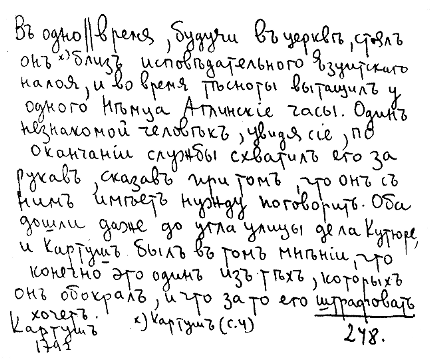 Въ одно || время, будучи въ церквѣ, стоялъ
онъ х) близъ исповѣдательного Езуитскаго
налоя, и во время тѣсноты вытащилъ у
одного Нѣмца Аглинскіе часы. Одинъ
незнакомой человѣкъ, увидя сіе, по
окончаніи службы схватилъ его за
рукавъ, сказавъ при томъ, что онъ съ
нимъ имѣетъ нужду поговорить. Оба
дошли даже до угла улицы дела Кутюре,
и Картушъ былъ въ томъ мнѣніи, что
конечно это одинъ изъ тѣхъ, которыхъ
онъ обокралъ, и что за то его штрафовать
хочетъ.
Картушъ х) Картушъ (с.ч) 248.
1791